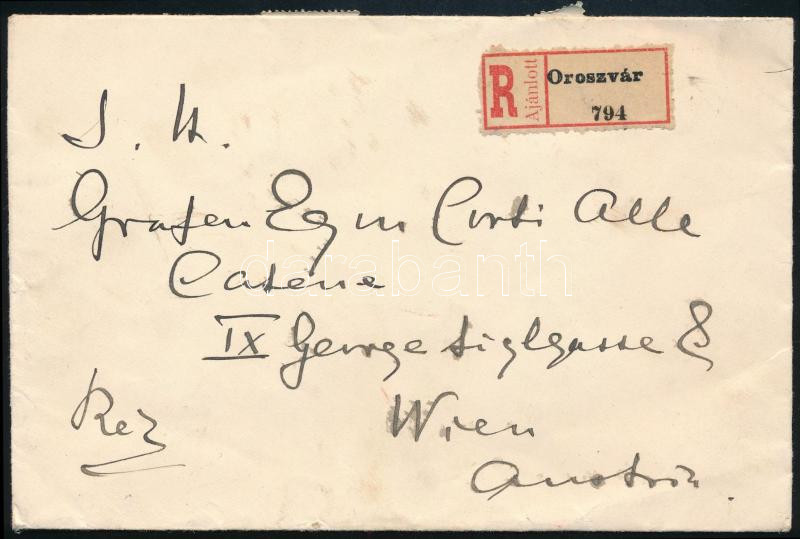 R Ajánlott Oroszvár
794
S. H.
Grafen Egon Corti Alle
Catene
IX George Siglgasse 8
Rez
Wien
Austria.
darabanth